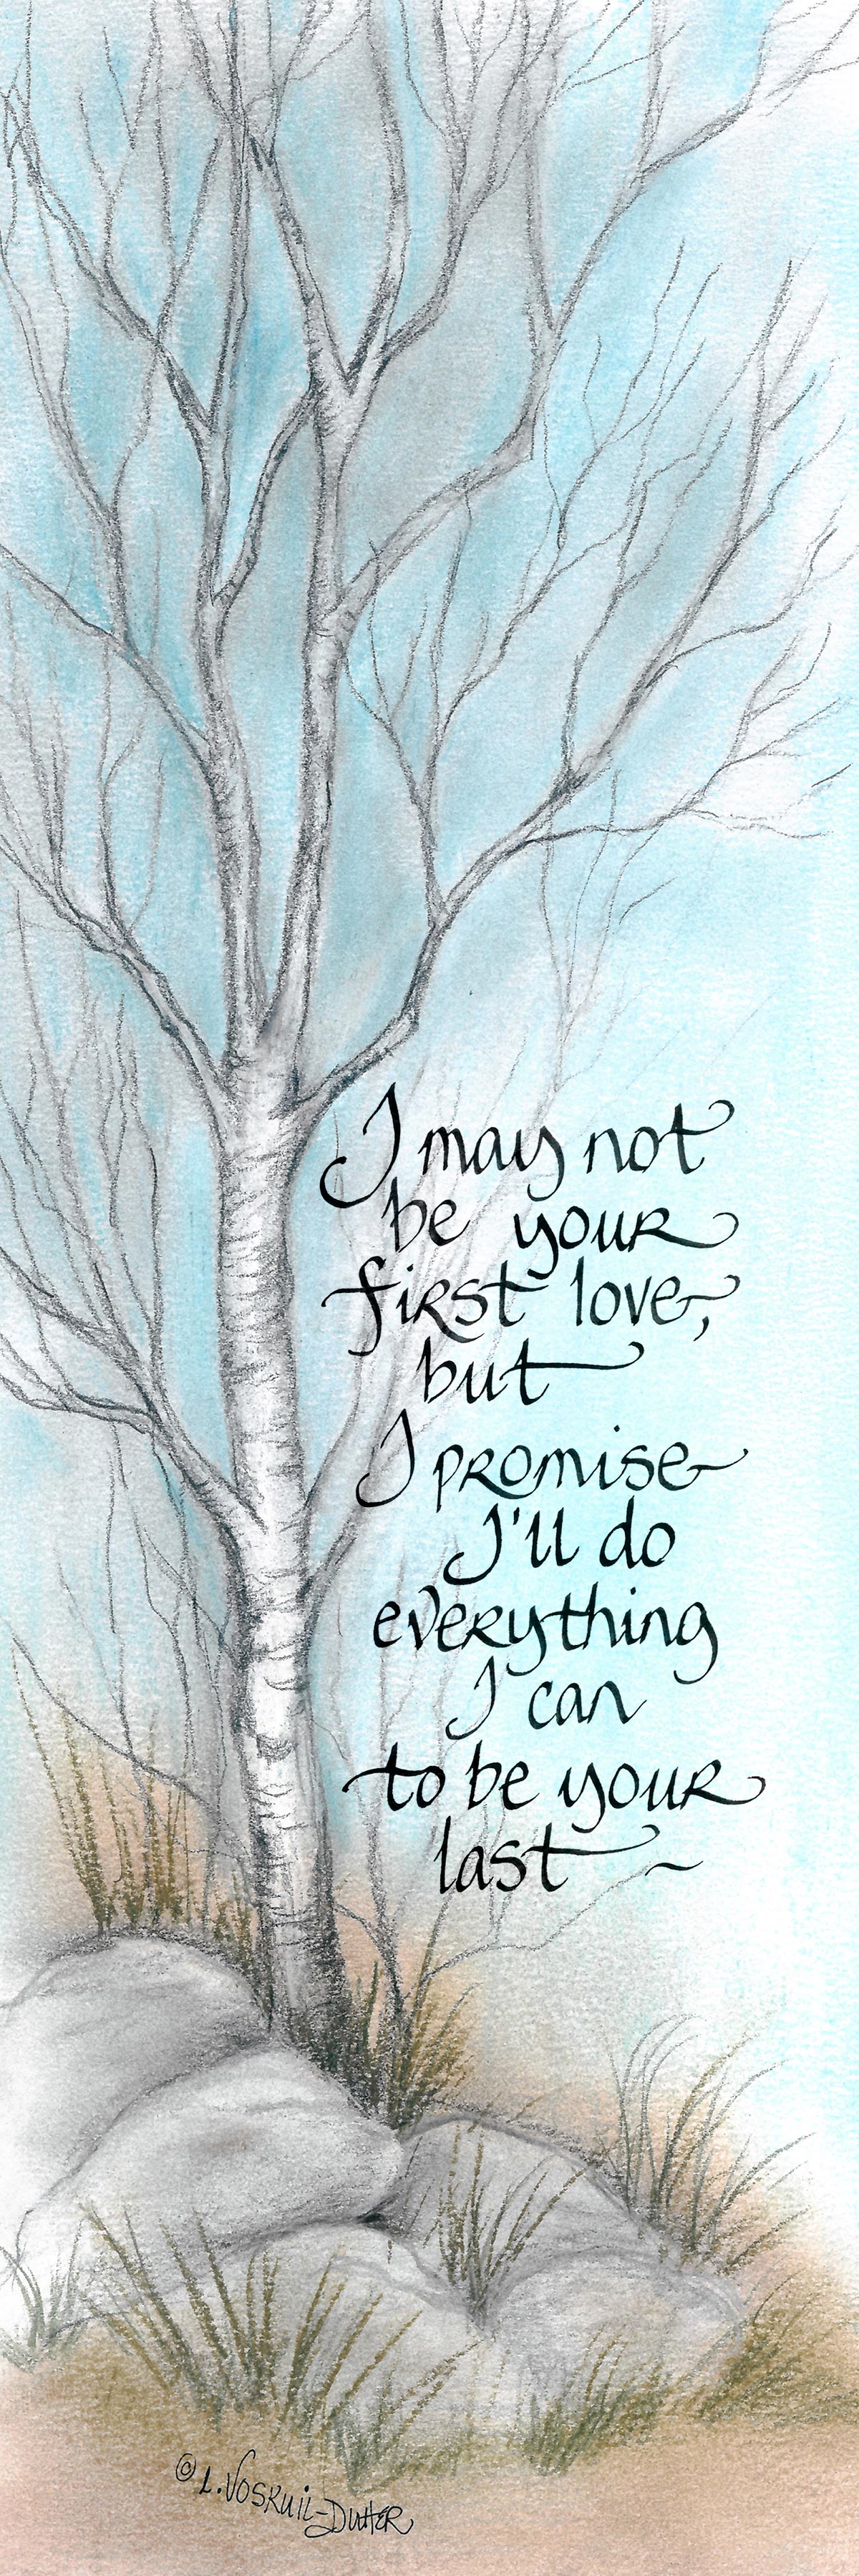 I may not
be your
first love,
but
I promise
I'll do
everything
I can
to be your
last ~
© L. Voskuil-Dutter